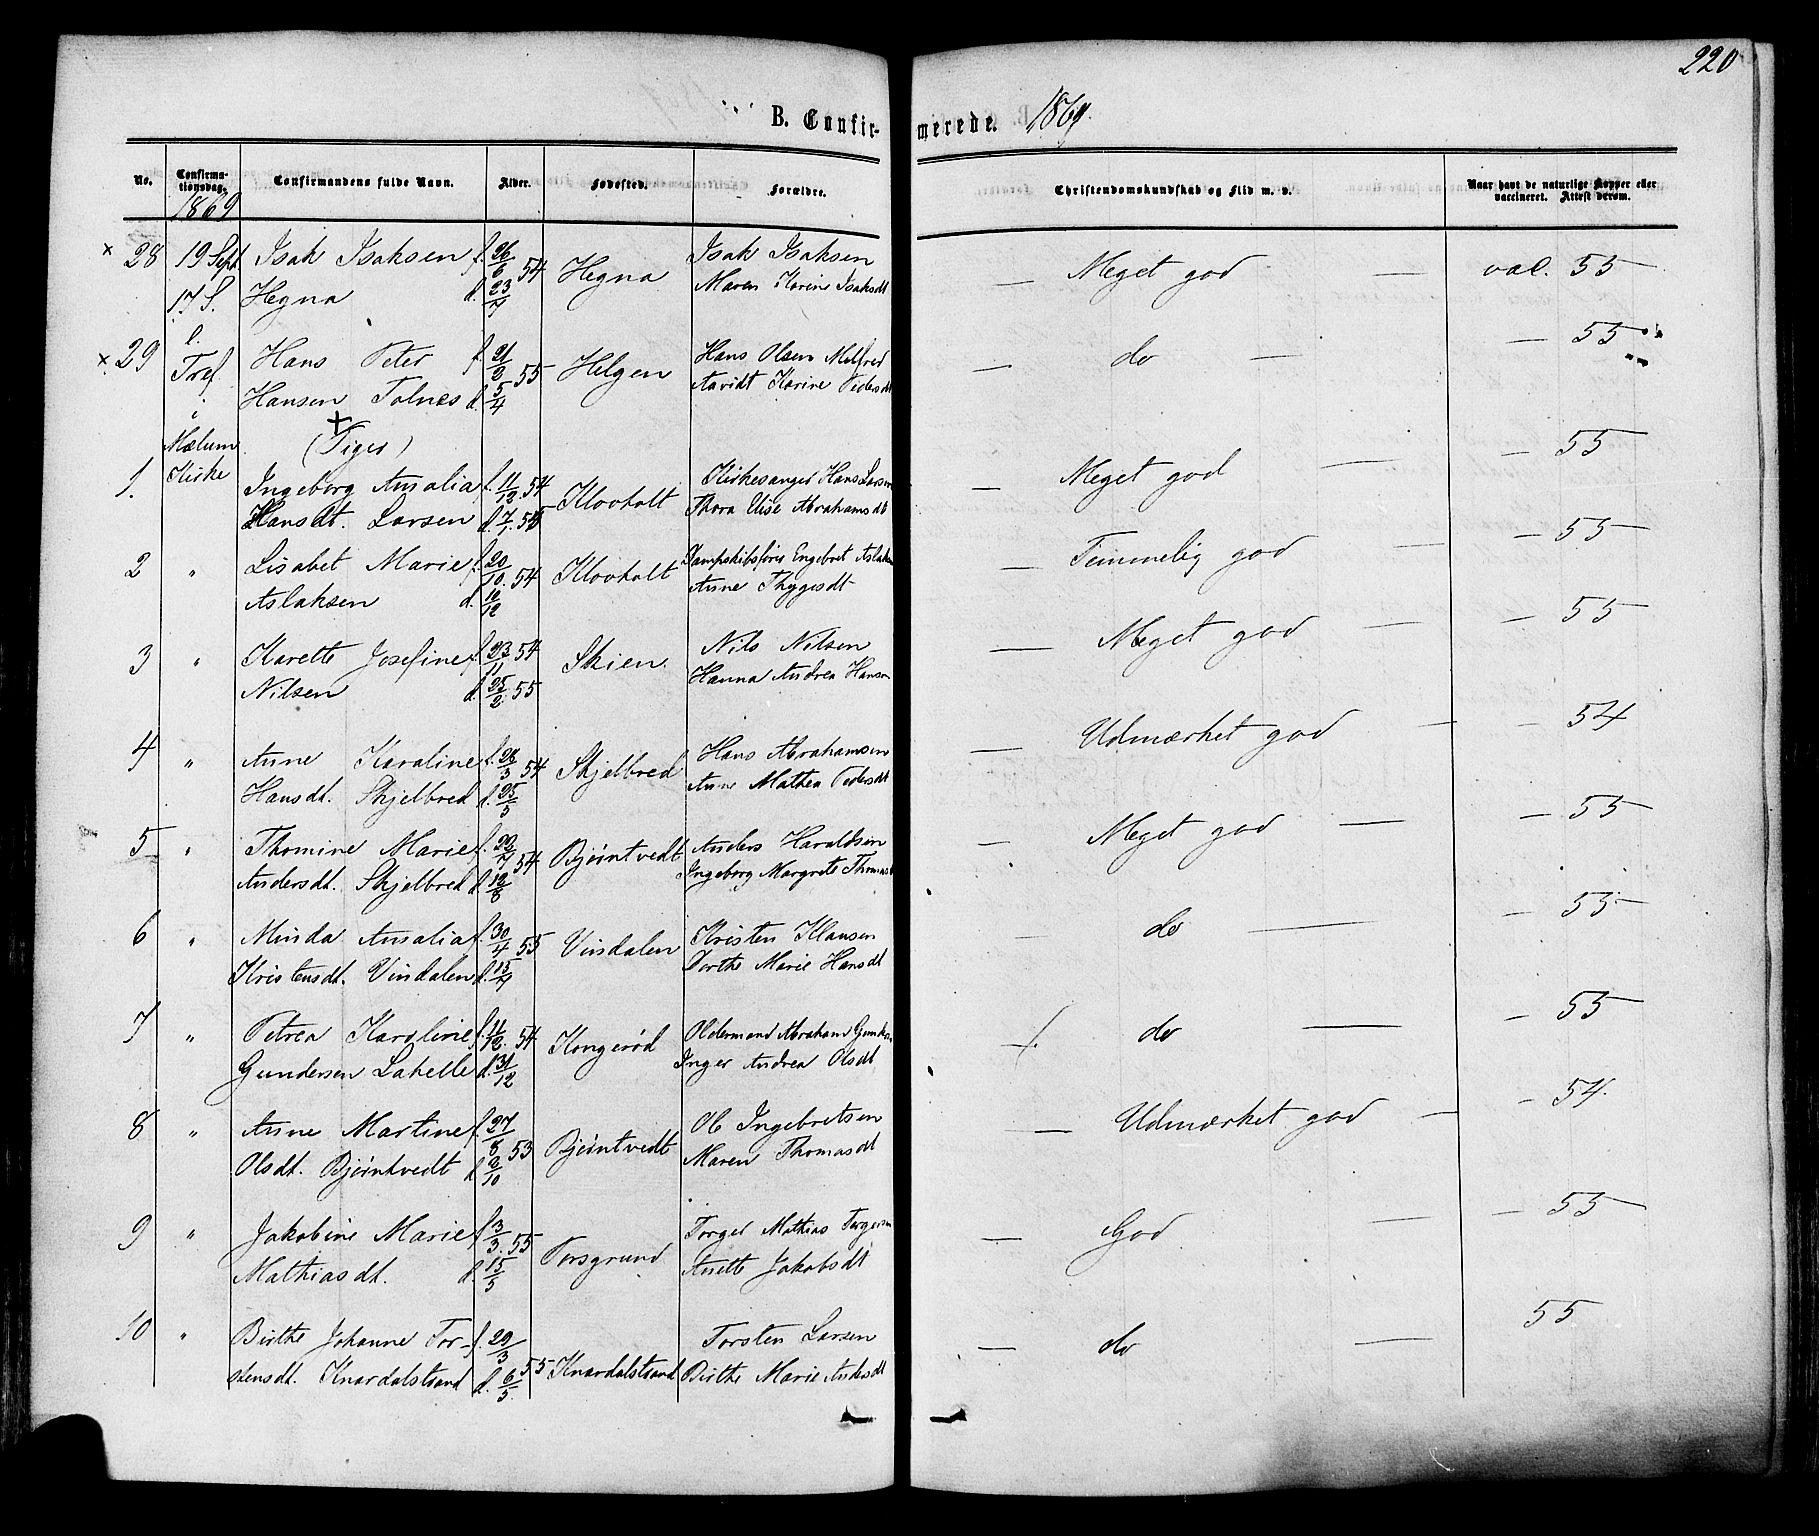 220
B. Confirmerede. 1869.
No. Confirmationsdag. Confirmandens fulde Navn. Alder. Fødested. Forældre. Christendomskundskab og Flid m. v. Naar havt de naturlige Kopper eller vaccineret. Attest derom.
1869
× 28 19 Sept Isak Isaksen f. 26/6 54 Hegna Isak Isaksen — Meget god — vac. 55
17 S. Hegna d. 23/7 Maren Karine Isaksdt
× 29 e. Tref. Hans Peter f. 21/2 55 Helgen Hans Olsen — do — — 55
Hansen Tolnes d. 5/4 Karine Pedersdt
i Mælum Kirke
+ (Piger)
1. Ingeborg Amalia f. 11/12 54 Klovholt Kirkesanger Hans Larsen — Meget god — — 55
Hansdt. Larsen d. 7/1 55 Thora Elise Abrahamsdt
2 " Lisabet Marie f. 20/10 54 Klovholt Dampskibsfører Engebret Aslaksen — Temmelig god — — 55
Aslaksen d. 12/12 Anne Thygesdt
3 " Karette Josefine f. 23/11 54 Skien Nils Nilsen — Meget god — — 55
Nilsen d. 25/2 55 Hanna Andrea Hansen
4 " Anne Karoline f. 28/3 54 Skjelbred Hans Abrahamsen — Udmærket god — — 54
Hansdt. Skjelbred d. 25/5 Anne Mathea Pedersdt
5 " Thomine Marie f. 22/7 54 Bjørntvedt Anders Haraldsen — Meget god — — 55
Andersdt. Skjelbred d. 12/8 Ingeborg Margrete Thomasdt
6 " Minda Amalia f. 30/4 55 Vindalen Kristen Klausen — do — — 55
Kristensdt. Vindalen d. 15/7 Dorthe Marie Hansdt
7 " Petrea Karoline f. 11/12 54 Kongerød Oldermand Abraham — do — — 55
Gundersen Lakelle d. 31/12 Inger Andrea Olsdt
8 " Anne Martine f. 27/8 53 Bjørntvedt Ole Ingebretsen — Udmærket god — — 54.
Olsdt. Bjørntvedt d. 2/10 Maren Thomasdt
9 " Jakobine Marie f. 3/3 55 Porsgrund Torger Mathias Torgersen — God — — 55
Mathiasdt. d. 15/5 Anette Jakobsdt
10 " Birthe Johanne Tor- f. 29/3 55 Knardalstrand Torsten Larsen — do — 55
stensdt. Knardalstrand d. 6/5. Birthe Marie Andersdt